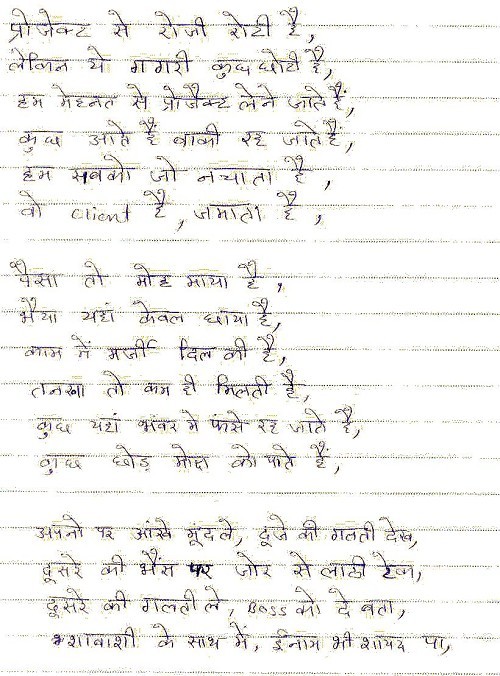 प्रोजेक्ट से रोजी रोटी है,
लेकिन ये गगरी कुछ छोटी है,
हम मेहनत से प्रोजैक्ट लेने जाते हैं,
कुछ आते हैं बाकी रह जाते हैं,
हम सबको जो नचाता है,
वो client है, जमाता है,
पैसा तो मोह माया है,
भैया यहां केवल छाया है,
काम में मर्जी दिल की है,
तनखा तो कम ही मिलती है,
कुछ यहां भंवर मे फंसे रह जाते है,
कुछ छोड़ मोक्ष को पाते हैं,
अपनो पर आंखे मूंदले, दूजे की गलती देख,
दूसरे की भैंस पर जोर से लाठी टेक,
दूसरे की गलती ले, Boss को दे बता,
शाबाशी के साथ में, ईनाम भी शायद पा,